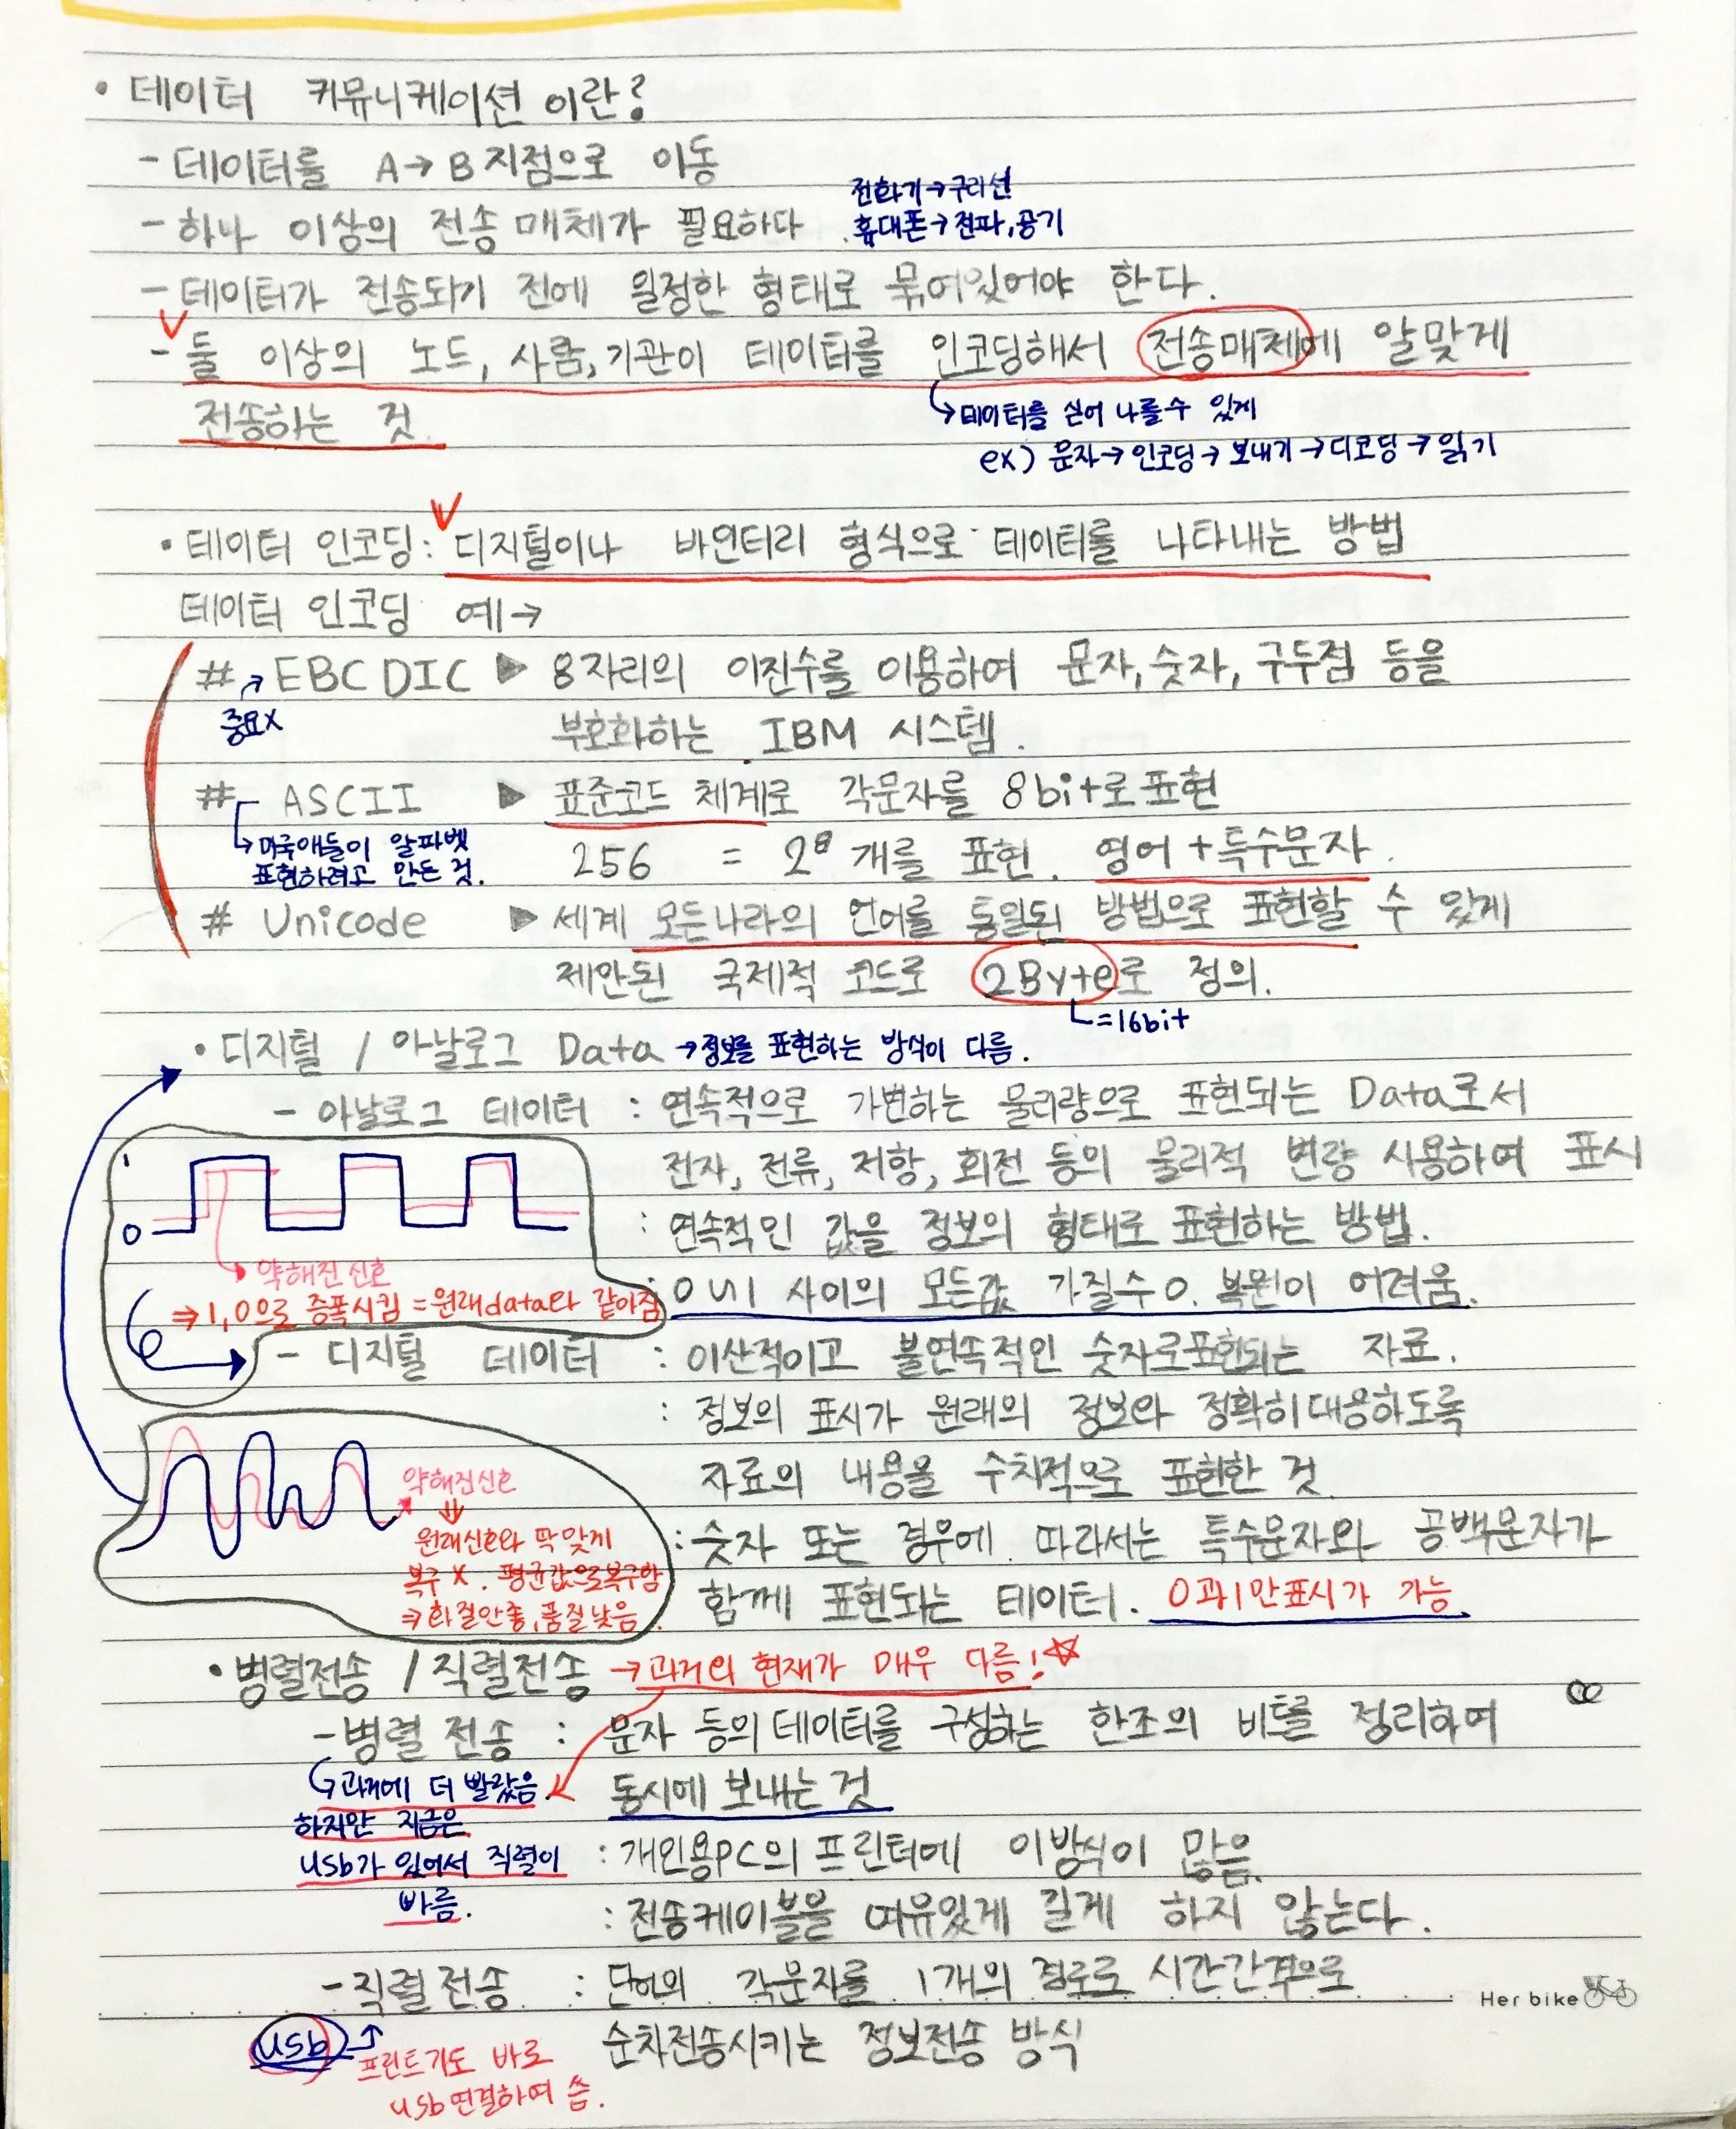 • 데이터 커뮤니케이션 이란?
- 데이터를 A→B지점으로 이동
전화기→구리선
- 하나 이상의 전송 매체가 필요하다.
휴대폰→전파,공기
- 데이터가 전송되기 전에 일정한 형태로 묶여있어야 한다.
- 둘 이상의 노드, 사람, 기관이 데이터를 인코딩해서 전송매체에 알맞게
전송하는 것.
↳데이터를 싣어 나를수 있게
ex) 문자→인코딩→보내기→디코딩→읽기
• 데이터 인코딩: 디지털이나 바이너리 형식으로 데이터를 나타내는 방법
데이터 인코딩 예→
# EBCDIC ▶ 8자리의 이진수를 이용하여 문자, 숫자, 구두점 등을
중요X
부호화하는 IBM 시스템.
# ASCII ▶ 표준코드 체계로 각문자를 8bit로 표현
↳미국애들이 알파벳
표현하려고 만든 것.
256 = 2⁸ 개를 표현. 영어+특수문자.
# Unicode ▶ 세계 모든나라의 언어를 통일된 방법으로 표현할 수 있게
제안된 국제적 코드로 2Byte로 정의.
↳=16bit
• 디지털 / 아날로그 Data →정보를 표현하는 방식이 다름.
- 아날로그 데이터 : 연속적으로 가변하는 물리량으로 표현되는 Data로서
전자, 전류, 저항, 회전 등의 물리적 변량 사용하여 표시
: 연속적인 값을 정보의 형태로 표현하는 방법.
: 0~1 사이의 모든값 가질수 O. 복원이 어려움.
1
0
약해진 신호
⇒1,0으로 증폭시킴=원래data와 같아짐
- 디지털 데이터 : 이산적이고 불연속적인 숫자로표현되는 자료.
: 정보의 표시가 원래의 정보와 정확히대응하도록
자료의 내용을 수치적으로 표현한 것
: 숫자 또는 경우에 따라서는 특수문자와 공백문자가
함께 표현되는 데이터. 0과1만표시가 가능.
약해진신호
⇓
원래신호와 딱 맞게
복구 X. 평균값으로복구함
⇒화질안좋,품질낮음.
• 병렬전송 / 직렬전송 →과거와 현재가 매우 다름!☆
- 병렬 전송 : 문자 등의데이터를 구성하는 한조의 비트를 정리하여
동시에 보내는 것
↳과거에 더 빨랐음.
하지만 지금은
usb가 있어서 직렬이
빠름.
: 개인용PC의 프린터에 이방식이 많음.
: 전송케이블을 여유있게 길게 하지 않는다.
- 직렬 전송 : 단어의 각문자를 1개의 경로로 시간간격으로
Her bike
순차전송시키는 정보전송 방식
usb
프린트기도 바로
usb연결하여 씀.